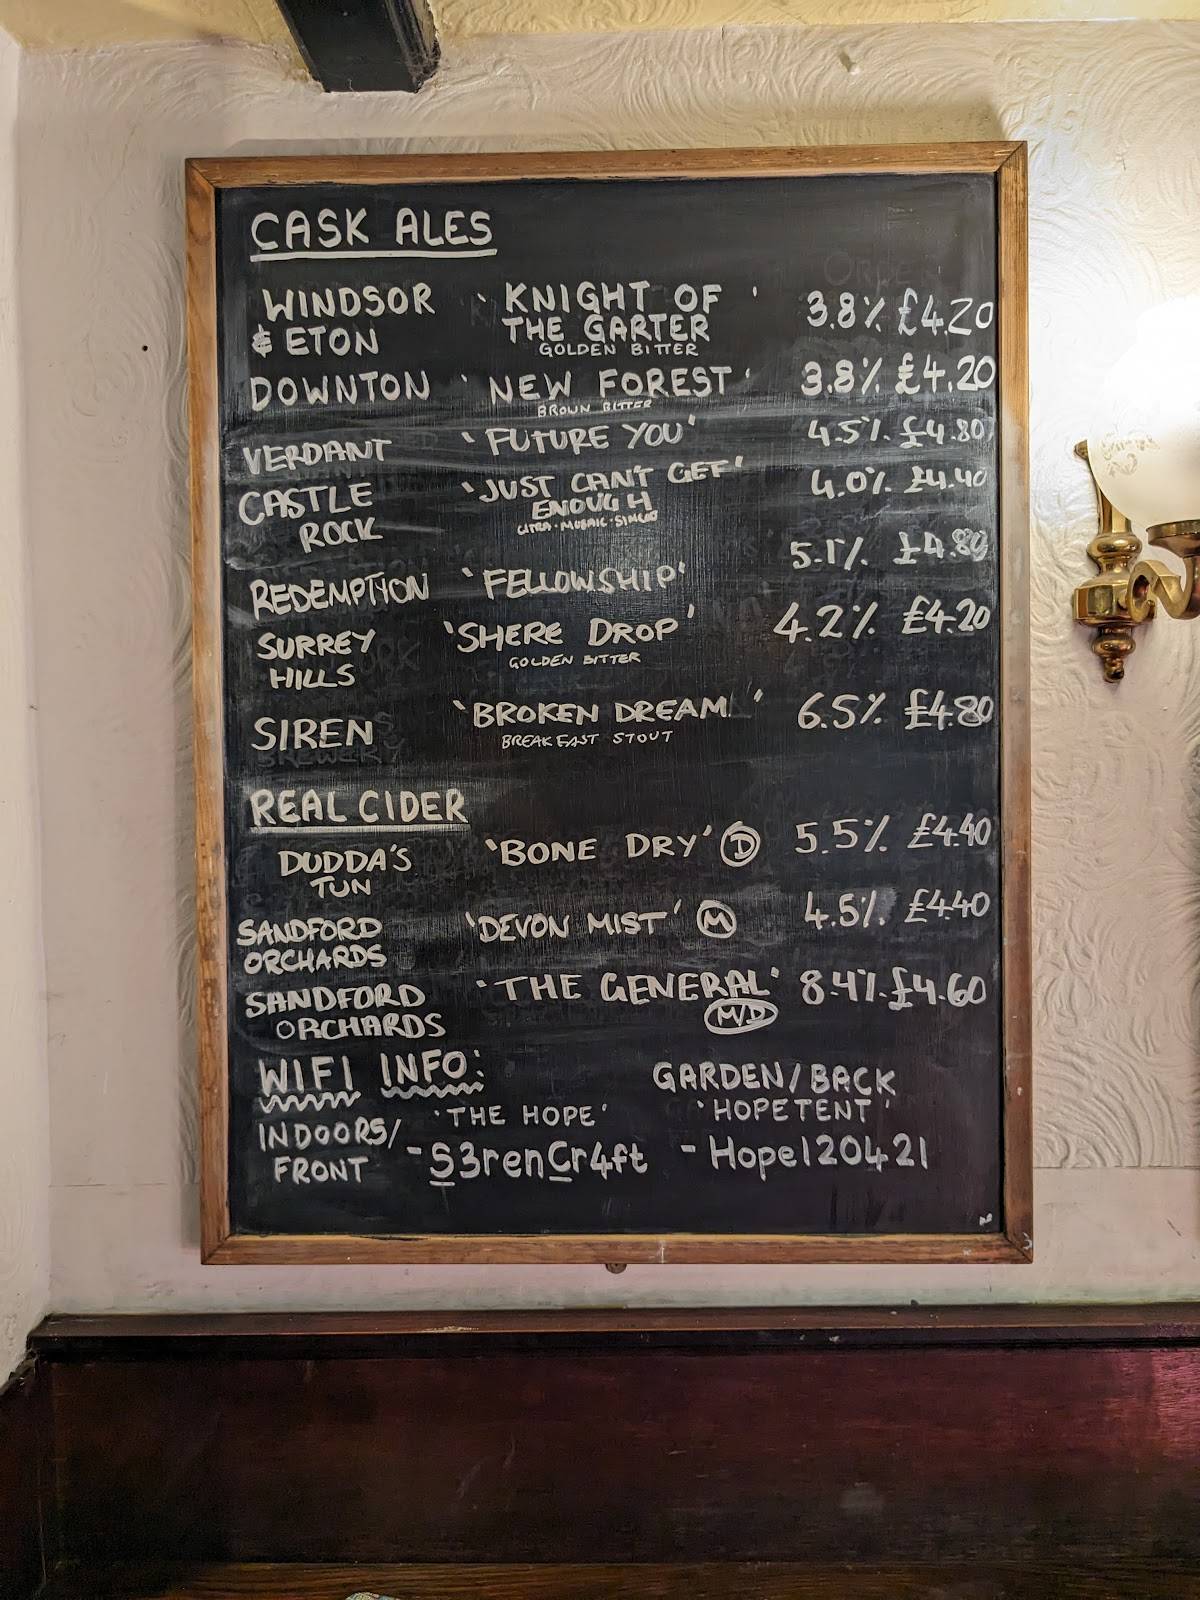 CASK ALES
WINDSOR & ETON 'KNIGHT OF THE GARTER' 3.8% £4.20
GOLDEN BITTER
DOWNTON 'NEW FOREST' 3.8% £4.20
BROWN BITTER
VERDANT 'FUTURE YOU' 4.5% £4.80
CASTLE ROCK 'JUST CAN'T GET ENOUGH' 4.0% £4.40
CITRA · MOSAIC · SIMCOE
REDEMPTION 'FELLOWSHIP' 5.1% £4.80
SURREY HILLS 'SHERE DROP' 4.2% £4.20
GOLDEN BITTER
SIREN 'BROKEN DREAM' 6.5% £4.80
BREAKFAST STOUT
REAL CIDER
DUDDA'S TUN 'BONE DRY' D 5.5% £4.40
SANDFORD ORCHARDS 'DEVON MIST' M 4.5% £4.40
SANDFORD ORCHARDS 'THE GENERAL' 8.4% £4.60
M/D
WIFI INFO:
INDOORS/ FRONT 'THE HOPE'
- S3renCr4ft
GARDEN/BACK
'HOPETENT'
- Hope120421